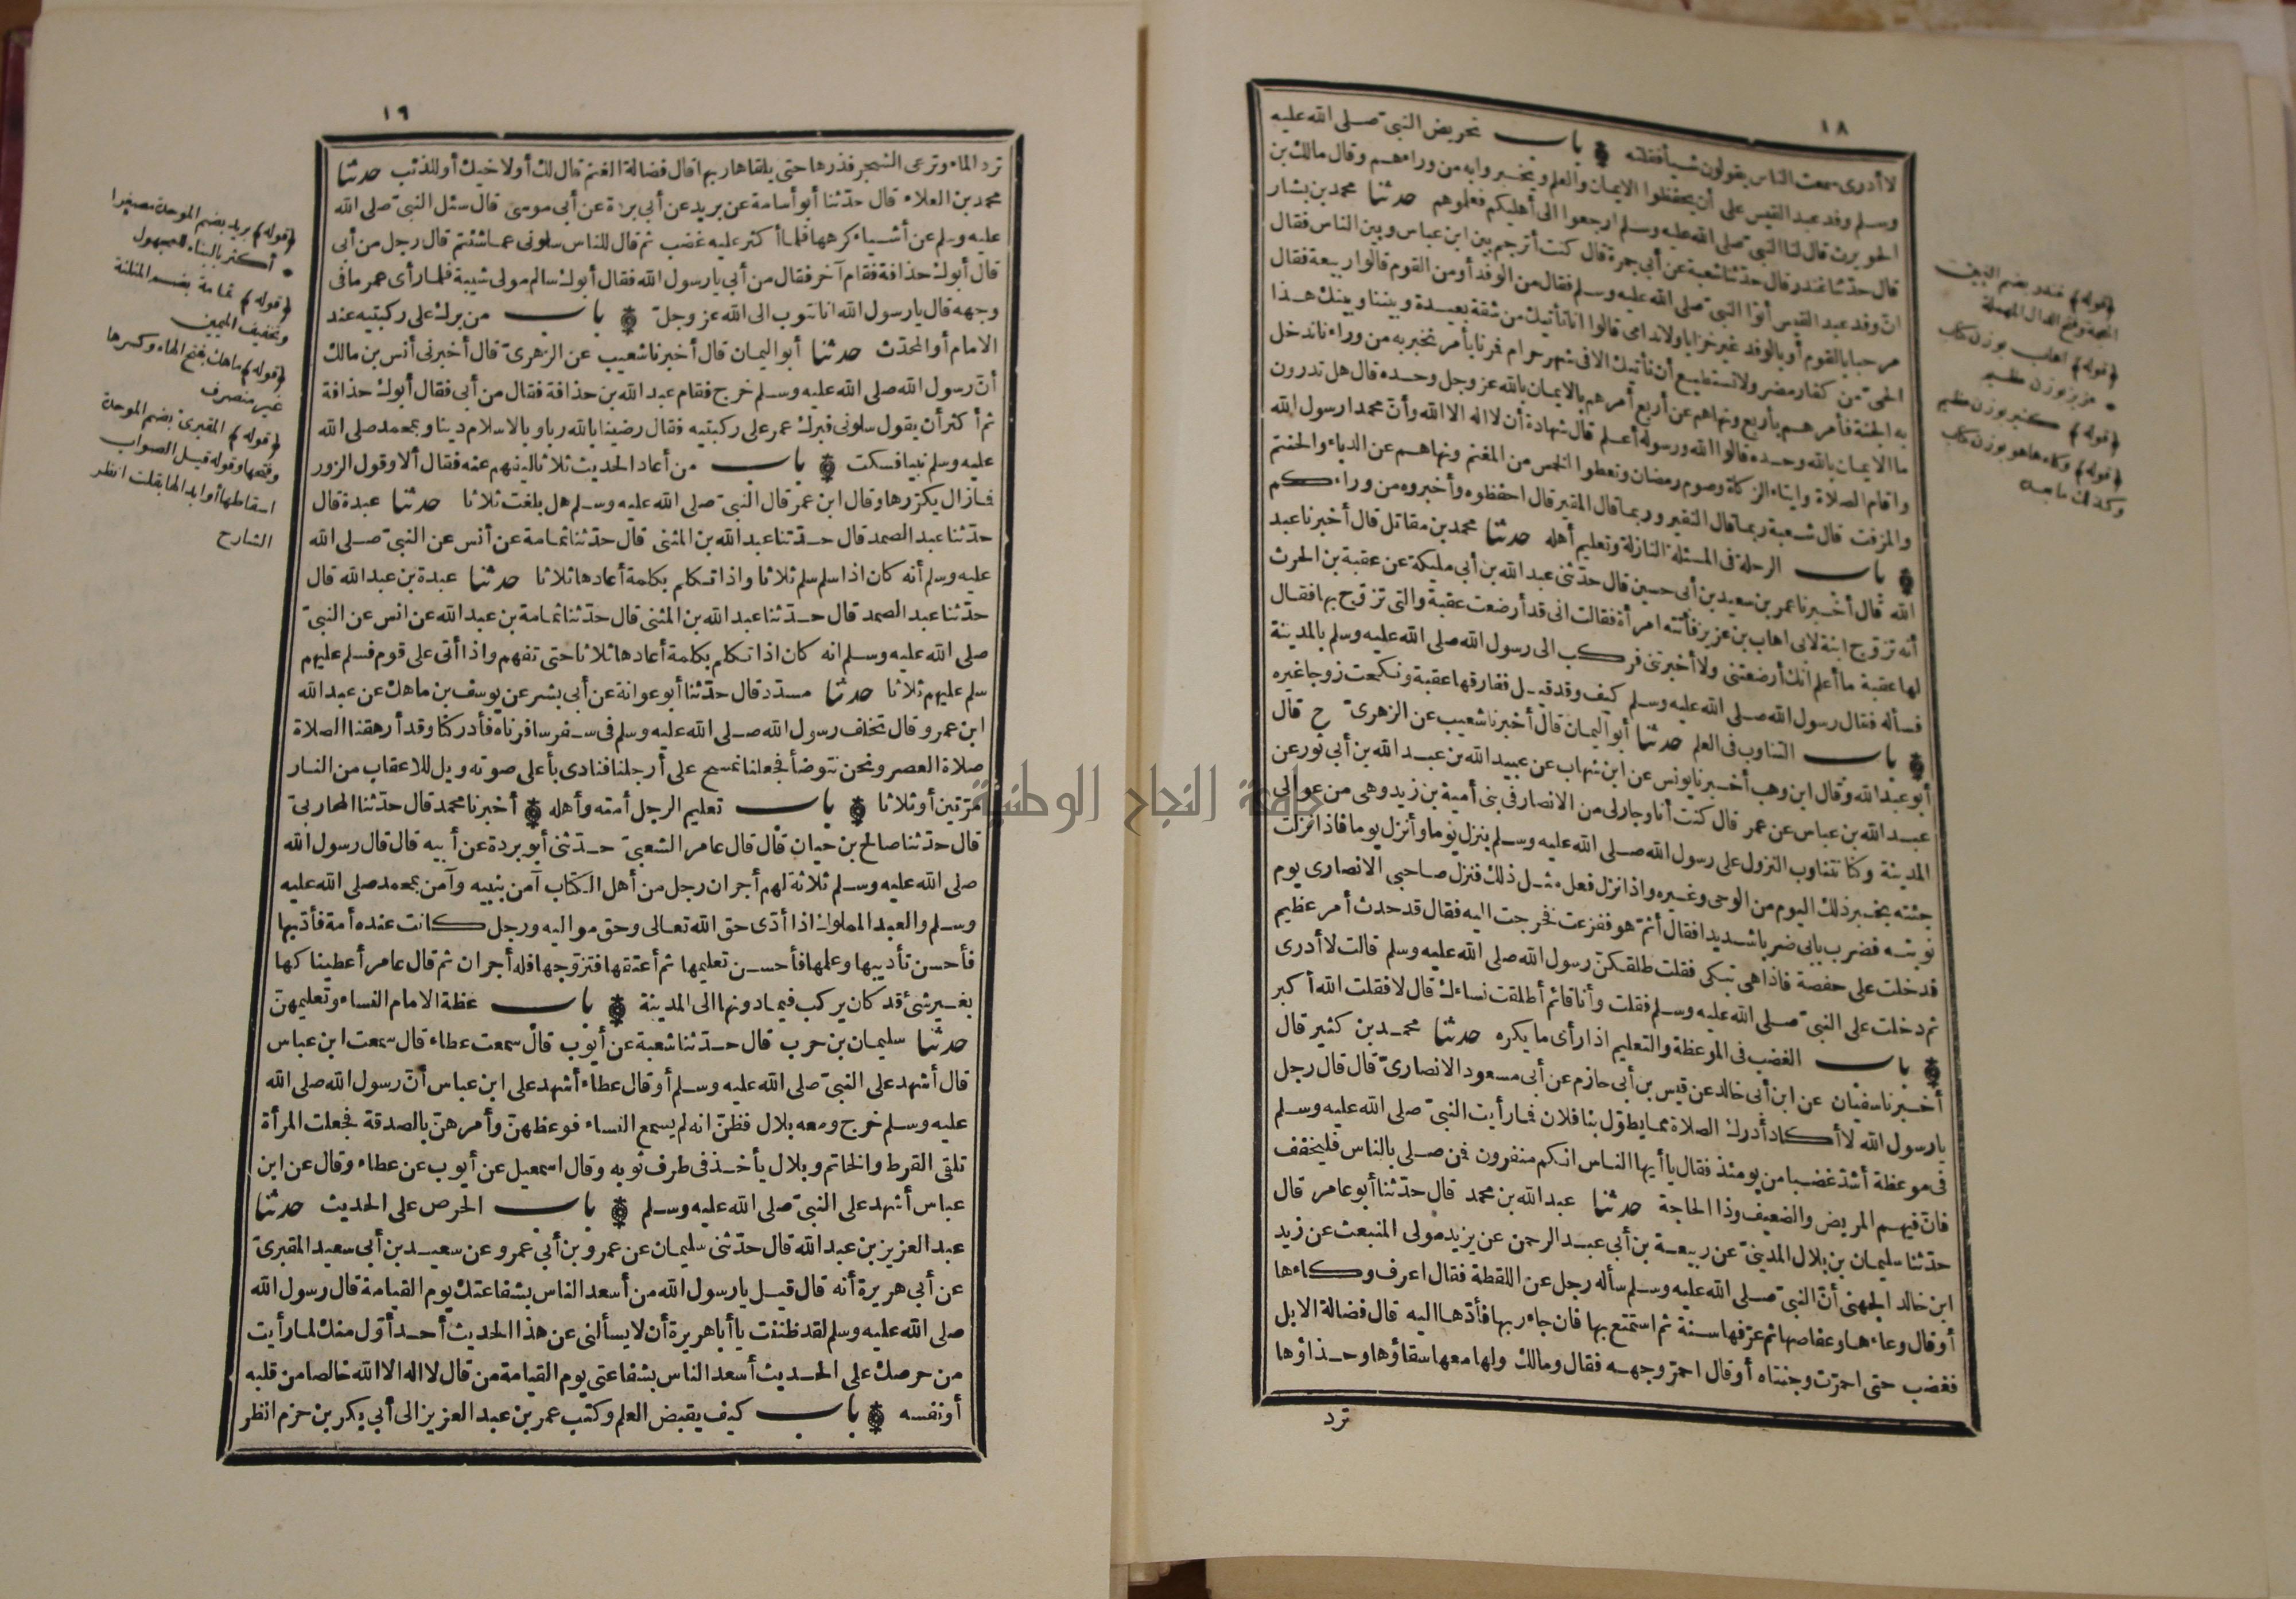 ١٨
لا أدرى سمعت الناس يقولون شيأ فقلته باب تحريض النبي صلى الله عليه
وسلم وفد عبد القيس على أن يحفظوا الايمان والعلم ويخبروا به من وراءهم وقال مالك بن
الحويرث قال لنا النبي صلى الله عليه وسلم ارجعوا الى أهليكم فعلموهم حدثنا محمد بن بشار
قال حدثنا غندر قال حدثنا شعبة عن أبى جمرة قال كنت أترجم بين ابن عباس وبين الناس فقال
ان وفد عبد القيس أتوا النبي صلى الله عليه وسلم فقال من الوفد أو من القوم قالوا ربيعة فقال
مرحبا بالقوم أو بالوفد غير خزايا ولا ندامى قالوا انا نأتيك من شقة بعيدة وبيننا وبينك هذا
الحى من كفار مضر ولا نستطيع أن نأتيك الا فى شهر حرام فمرنا بأمر نخبر به من وراءنا ندخل
به الجنة فأمرهم بأربع ونهاهم عن أربع أمرهم بالايمان بالله عز وجل وحده قال هل تدرون
ما الايمان بالله وحده قالوا الله ورسوله أعلم قال شهادة أن لا اله الا الله وأن محمدا رسول الله
واقام الصلاة وايتاء الزكاة وصوم رمضان وتعطوا الخمس من المغنم ونهاهم عن الدباء والحنتم
والمزفت قال شعبة ربما قال النقير وربما قال المقير قال احفظوه وأخبروه من وراءكم
باب الرحلة فى المسئلة النازلة وتعليم أهله حدثنا محمد بن مقاتل قال أخبرنا عبد
الله قال أخبرنا عمر بن سعيد بن أبى حسين قال حدثنى عبد الله بن أبى مليكة عن عقبة بن الحرث
أنه تزوج ابنة لابى اهاب بن عزيز فأتته امرأة فقالت انى قد أرضعت عقبة والتى تزوج بها فقال
لها عقبة ما أعلم انك أرضعتنى ولا أخبرتنى فركب الى رسول الله صلى الله عليه وسلم بالمدينة
فسأله فقال رسول الله صلى الله عليه وسلم كيف وقد قيل ففارقها عقبة ونكحت زوجا غيره
باب التناوب فى العلم حدثنا أبو اليمان قال أخبرنا شعيب عن الزهرى ح قال
أبو عبد الله وقال ابن وهب أخبرنا يونس عن ابن شهاب عن عبيد الله بن عبد الله بن أبى ثور عن
عبد الله بن عباس عن عمر قال كنت أنا وجار لى من الانصار فى بنى أمية بن زيد وهى من عوالى
المدينة وكنا نتناوب النزول على رسول الله صلى الله عليه وسلم ينزل يوما وأنزل يوما فاذا نزلت
جئته بخبر ذلك اليوم من الوحى وغيره واذا نزل فعل مثل ذلك فنزل صاحبى الانصارى يوم
نوبته فضرب بابى ضربا شديدا فقال أثم هو ففزعت فخرجت اليه فقال قد حدث أمر عظيم
قد دخلت على حفصة فاذا هى تبكى فقلت طلقكن رسول الله صلى الله عليه وسلم قالت لا أدرى
ثم دخلت على النبي صلى الله عليه وسلم فقلت وأنا قائم أطلقت نساءك قال لا فقلت الله أكبر
باب الغضب فى الموعظة والتعليم اذا رأى ما يكره حدثنا محمد بن كثير قال
أخبرنا سفيان عن ابن أبى خالد عن قيس بن أبى حازم عن أبى مسعود الانصارى قال قال رجل
يا رسول الله لا أكاد أدرك الصلاة مما يطول بنا فلان فما رأيت النبي صلى الله عليه وسلم
فى موعظة أشد غضبا من يومئذ فقال يا أيها الناس انكم منفرون فمن صلى بالناس فليخفف
فان فيهم المريض والضعيف وذا الحاجة حدثنا عبد الله بن محمد قال حدثنا أبو عامر قال
حدثنا سليمان بن بلال المدينى عن ربيعة بن أبى عبد الرحمن عن يزيد مولى المنبعث عن زيد
ابن خالد الجهنى أن النبي صلى الله عليه وسلم سأله رجل عن اللقطة فقال اعرف وكاءها
أو قال وعاءها وعفاصها ثم عرفها سنة ثم استمتع بها فان جاء ربها فأدها اليه قال فضالة الابل
فغضب حتى احمرت وجنتاه أو قال احمر وجهه فقال ومالك ولها معها سقاؤها وحذاؤها
ترد
(قوله) غندر بضم الغين
المعجمة وفتح الدال المهملة
(قوله) اهاب بوزن كتاب
* عزيز بوزن عظيم
(قوله) كثير بوزن عظيم
(قوله) وكاءها هو بوزن كتاب
وكذلك ما بعده
١٩
ترد الماء وترعى الشجر فذرها حتى يلقاها ربها قال فضالة الغنم قال لك أو لاخيك أو للذئب حدثنا
محمد بن العلاء قال حدثنا أبو أسامة عن بريد عن أبى بردة عن أبى موسى قال سئل النبي صلى الله
عليه وسلم عن أشياء كرهها فلما أكثر عليه غضب ثم قال للناس سلونى عما شئتم قال رجل من أبى
قال أبوك حذافة فقام آخر فقال من أبى يا رسول الله فقال أبوك سالم مولى شيبة فلما رأى عمر ما فى
وجهه قال يا رسول الله انا نتوب الى الله عز وجل باب من برك على ركبتيه عند
الامام أو المحدث حدثنا أبو اليمان قال أخبرنا شعيب عن الزهرى قال أخبرنى أنس بن مالك
أن رسول الله صلى الله عليه وسلم خرج فقام عبد الله بن حذافة فقال من أبى فقال أبوك حذافة
ثم أكثر أن يقول سلونى فبرك عمر على ركبتيه فقال رضينا بالله ربا وبالاسلام دينا وبمحمد صلى الله
عليه وسلم نبيا فسكت باب من أعاد الحديث ثلاثا ليفهم عنه فقال ألا وقول الزور
فما زال يكررها وقال ابن عمر قال النبي صلى الله عليه وسلم هل بلغت ثلاثا حدثنا عبدة قال
حدثنا عبد الصمد قال حدثنا عبد الله بن المثنى قال حدثنا ثمامة عن أنس عن النبي صلى الله
عليه وسلم أنه كان اذا سلم سلم ثلاثا واذا تكلم بكلمة أعادها ثلاثا حدثنا عبدة بن عبد الله قال
حدثنا عبد الصمد قال حدثنا عبد الله بن المثنى قال حدثنا ثمامة بن عبد الله عن انس عن النبي
صلى الله عليه وسلم انه كان اذا تكلم بكلمة أعادها ثلاثا حتى تفهم واذا أتى على قوم فسلم عليهم
سلم عليهم ثلاثا حدثنا مسدد قال حدثنا أبو عوانة عن أبى بشر عن يوسف بن ماهك عن عبد الله
ابن عمرو قال تخلف رسول الله صلى الله عليه وسلم فى سفر سافرناه فأدركنا وقد أرهقنا الصلاة
صلاة العصر ونحن نتوضأ فجعلنا نمسح على أرجلنا فنادى بأعلى صوته ويل للاعقاب من النار
مرتين أو ثلاثا باب تعليم الرجل أمته وأهله أخبرنا محمد قال حدثنا المحاربى
قال حدثنا صالح بن حيان قال قال عامر الشعبى حدثنى أبو بردة عن أبيه قال قال رسول الله
صلى الله عليه وسلم ثلاثة لهم أجران رجل من أهل الكتاب آمن بنبيه وآمن بمحمد صلى الله عليه
وسلم والعبد المملوك اذا أدى حق الله تعالى وحق مواليه ورجل كانت عنده أمة فأدبها
فأحسن تأديبها وعلمها فأحسن تعليمها ثم أعتقها فتزوجها فله أجران ثم قال عامر أعطيناكها
بغير شئ قد كان يركب فيما دونها الى المدينة باب عظة الامام النساء وتعليمهن
حدثنا سليمان بن حرب قال حدثنا شعبة عن أيوب قال سمعت عطاء قال سمعت ابن عباس
قال أشهد على النبي صلى الله عليه وسلم أو قال عطاء أشهد على ابن عباس أن رسول الله صلى الله
عليه وسلم خرج ومعه بلال فظن انه لم يسمع النساء فوعظهن وأمرهن بالصدقة فجعلت المرأة
تلقى القرط والخاتم وبلال يأخذ فى طرف ثوبه وقال اسمعيل عن أيوب عن عطاء وقال عن ابن
عباس أشهد على النبي صلى الله عليه وسلم باب الحرص على الحديث حدثنا
عبد العزيز بن عبد الله قال حدثنى سليمان عن عمرو بن أبى عمرو عن سعيد بن أبى سعيد المقبرى
عن أبى هريرة أنه قال قيل يا رسول الله من أسعد الناس بشفاعتك يوم القيامة قال رسول الله
صلى الله عليه وسلم لقد ظننت يا أبا هريرة أن لا يسألنى عن هذا الحديث أحد أول منك لما رأيت
من حرصك على الحديث أسعد الناس بشفاعتى يوم القيامة من قال لا اله الا الله خالصا من قلبه
أو نفسه باب كيف يقبض العلم وكتب عمر بن عبد العزيز الى أبى بكر بن حزم انظر
(قوله) بريد بضم الموحدة مصغرا
* أكثر بالبناء للمجهول
(قوله) ثمامة بضم المثلثة
وتخفيف الميمين
(قوله) ماهك بفتح الهاء وكسرها
غير منصرف
(قوله) المقبرى بضم الموحدة
وفتحها وقوله قيل الصواب
اسقاطها أو ابدالها بقلت انظر
الشارح
جامعة النجاح الوطنية